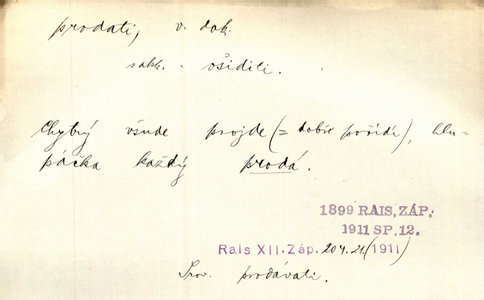 prodati, v. dok.
ošiditi.
Chytrý všude projde (= dobře pořídí), hlu-
páčka každý prodá.
1899 RAIS, ZÁP.
1911 SP. 12.
Rais XII. Záp. 204.21 (1911)
Srov. prodávati.